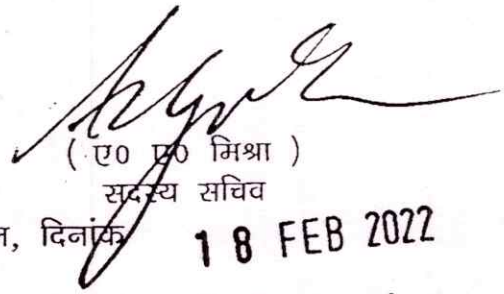 ( ए0 ए0 मिश्रा )
सदस्य सचिव
दिनांक 18 FEB 2022